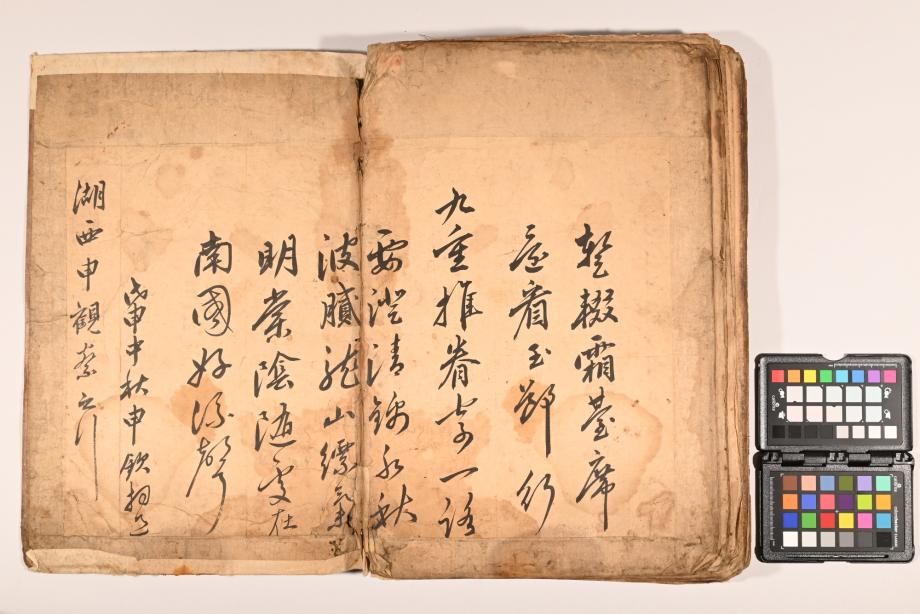 暫輟霜臺席
看玉節行
九重推眷寄一路
要澄清錦水秋
波膩龍山氣
明棠陰隨處在
南國好流聲
戊申中秋申欽
湖西申觀察之行